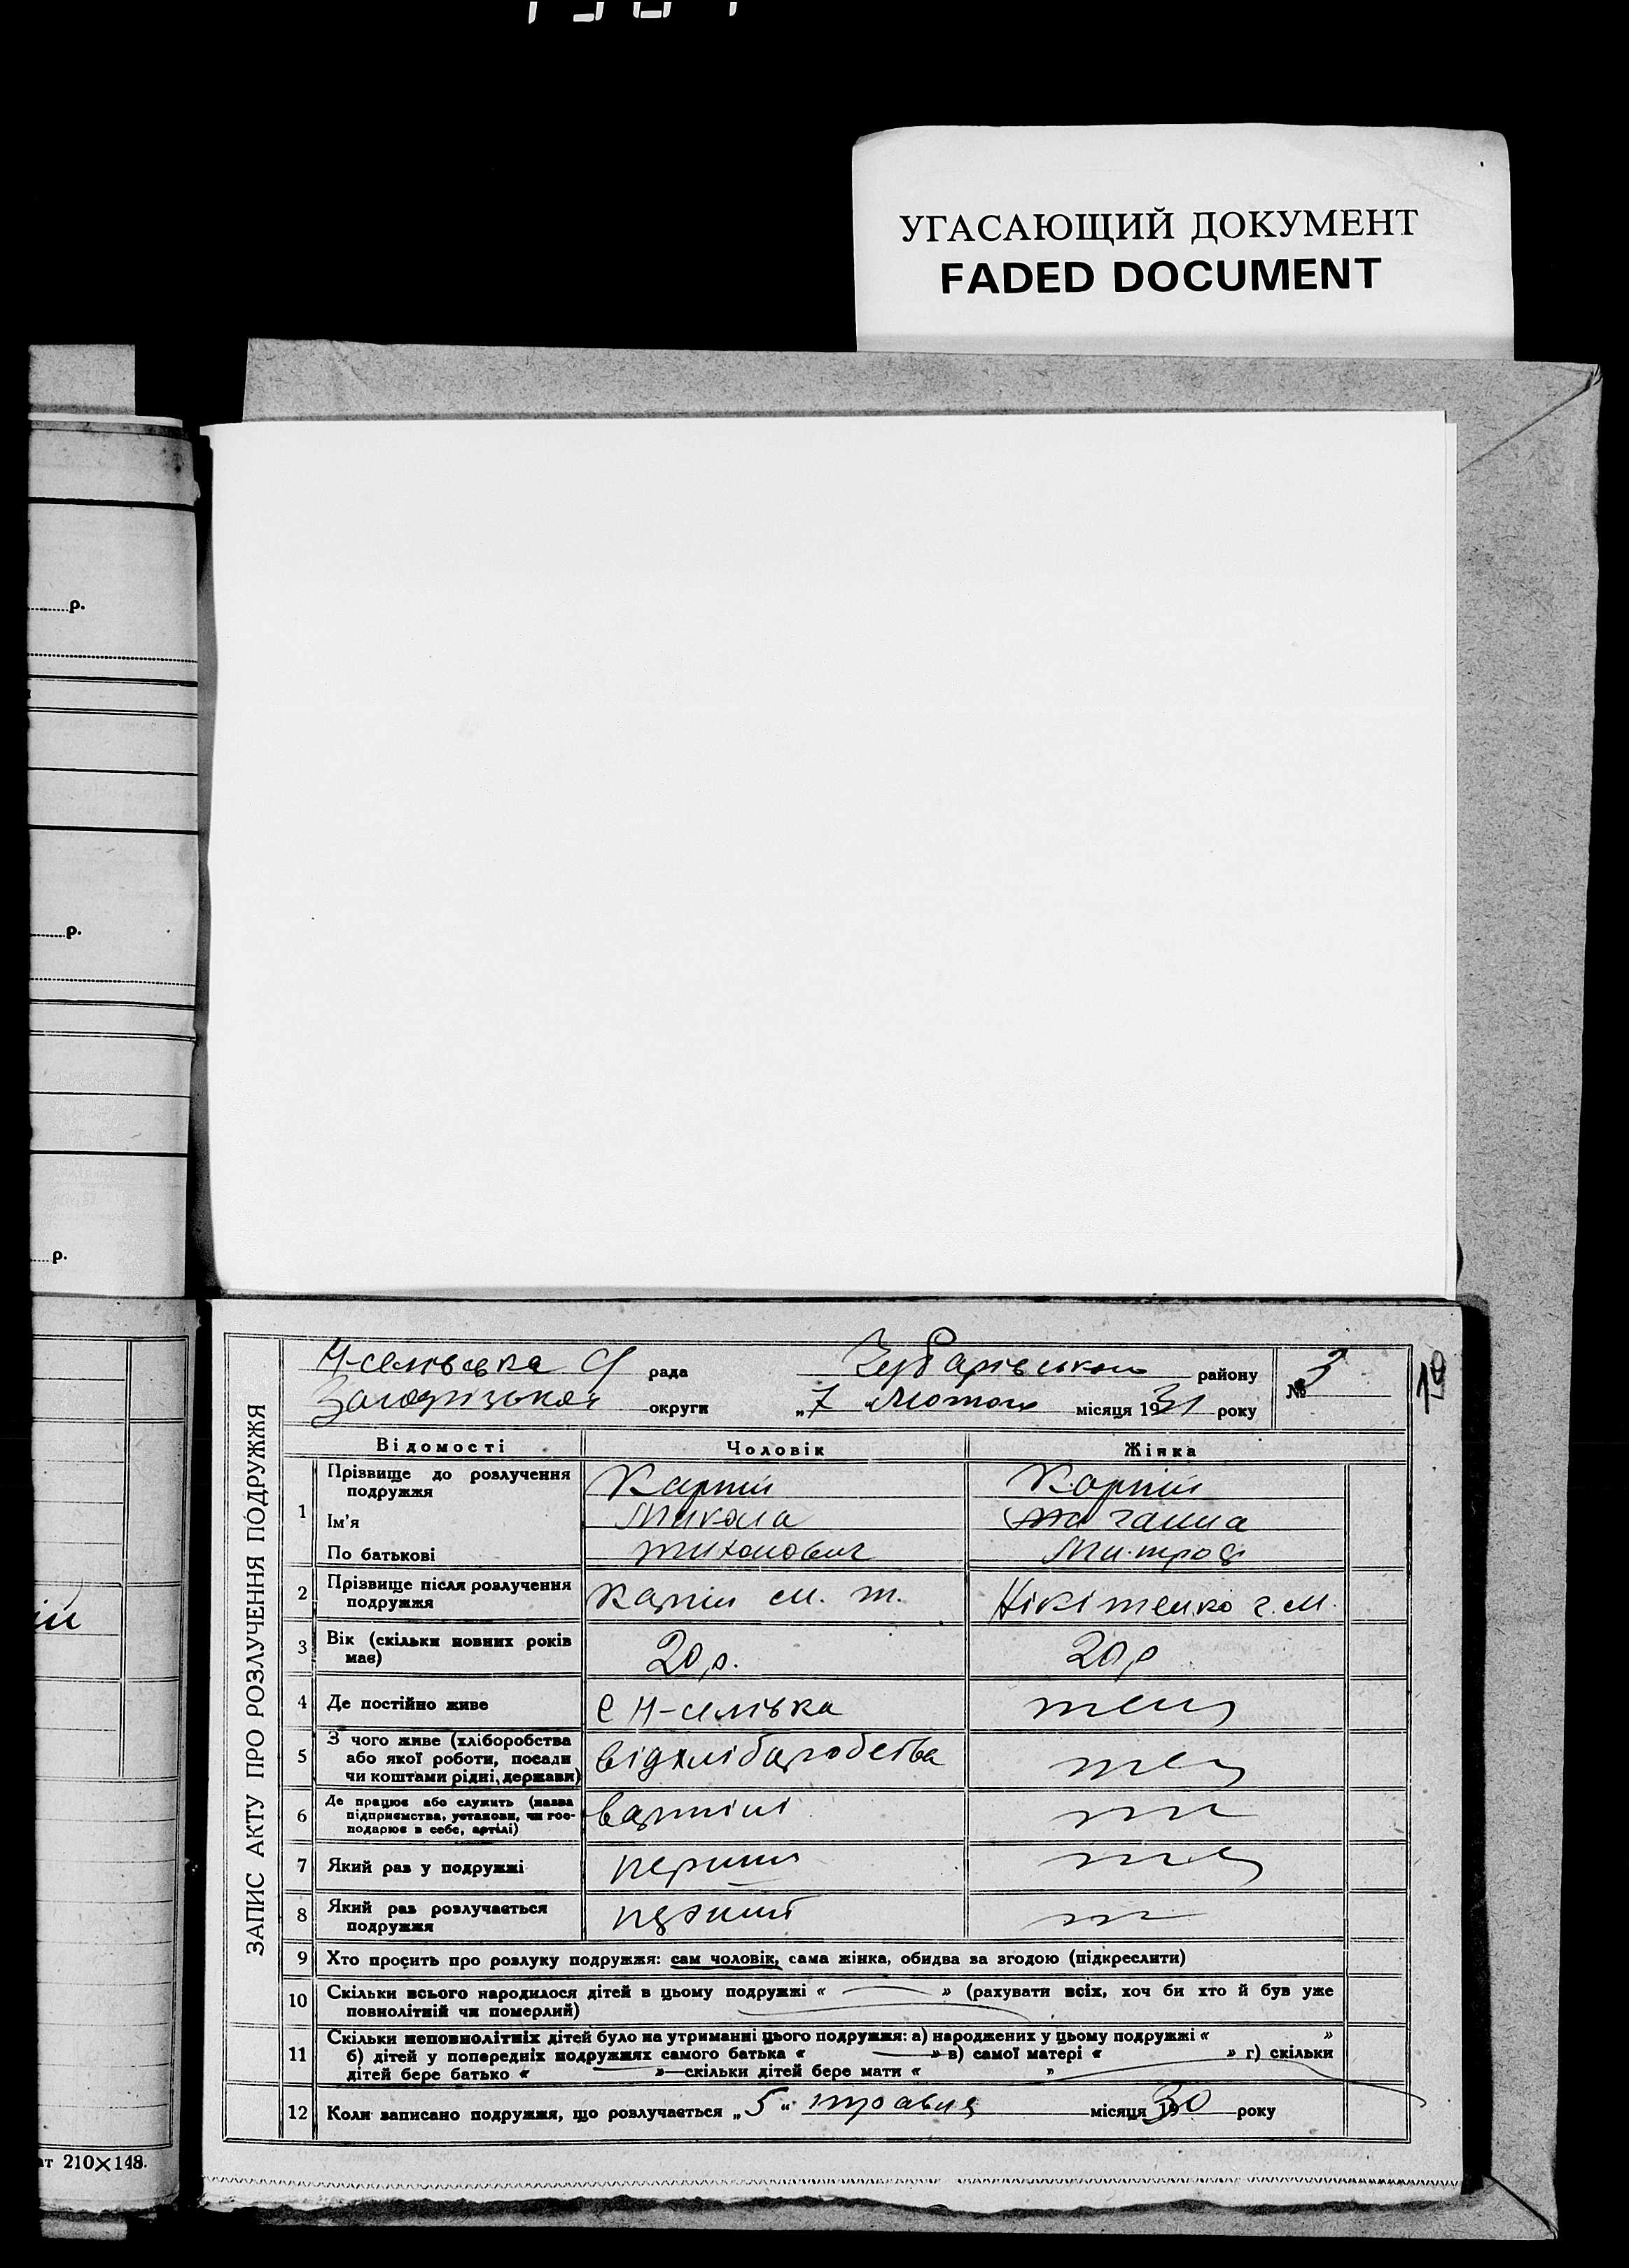 УГАСАЮЩИЙ ДОКУМЕНТ
FADED DOCUMENT
р.
р.
р.
ат 210×148.
ЗАПИС АКТУ ПРО РОЗЛУЧЕННЯ ПОДРУЖЖЯ
Н-селівська рада Чубарівського району № 3
округи „7 лютого місяця 1931 року
19
Відомості Чоловік Жінка
1 Прізвище до розлучення подружжя Карпій Карпій
Ім'я Микола ганна
По батькові тихонович Митроф
2 Прізвище після розлучення подружжя Карпій м. т. Нікітенко г. м.
3 Вік (скільки повних років має) 20 р. 20 р
4 Де постійно живе с Н-селівка теж
5 З чого живе (хліборобства
або якої роботи, посади
чи коштами рідні, держави) від хліборобства теж
6 Де працює або служить (назва
підприємства, установи, чи гос-
подарює в себе, артілі) вартілі
7 Який раз у подружжі перший теж
8 Який раз розлучається
подружжя перший
9 Хто просить про розлуку подружжя: сам чоловік, сама жінка, обидва за згодою (підкреслити)
10 Скільки всього народилося дітей в цьому подружжі « — » (рахувати всіх, хоч би хто й був уже
повнолітній чи померлий)
11 Скільки неповнолітніх дітей було на утриманні цього подружжя: а) народжених у цьому подружжі « »
б) дітей у попередніх подружжях самого батька « — » в) самої матері « » г) скільки
дітей бере батько « — » скільки дітей бере мати « »
12 Коли записано подружжя, що розлучається „5“ травня місяця 1930 року